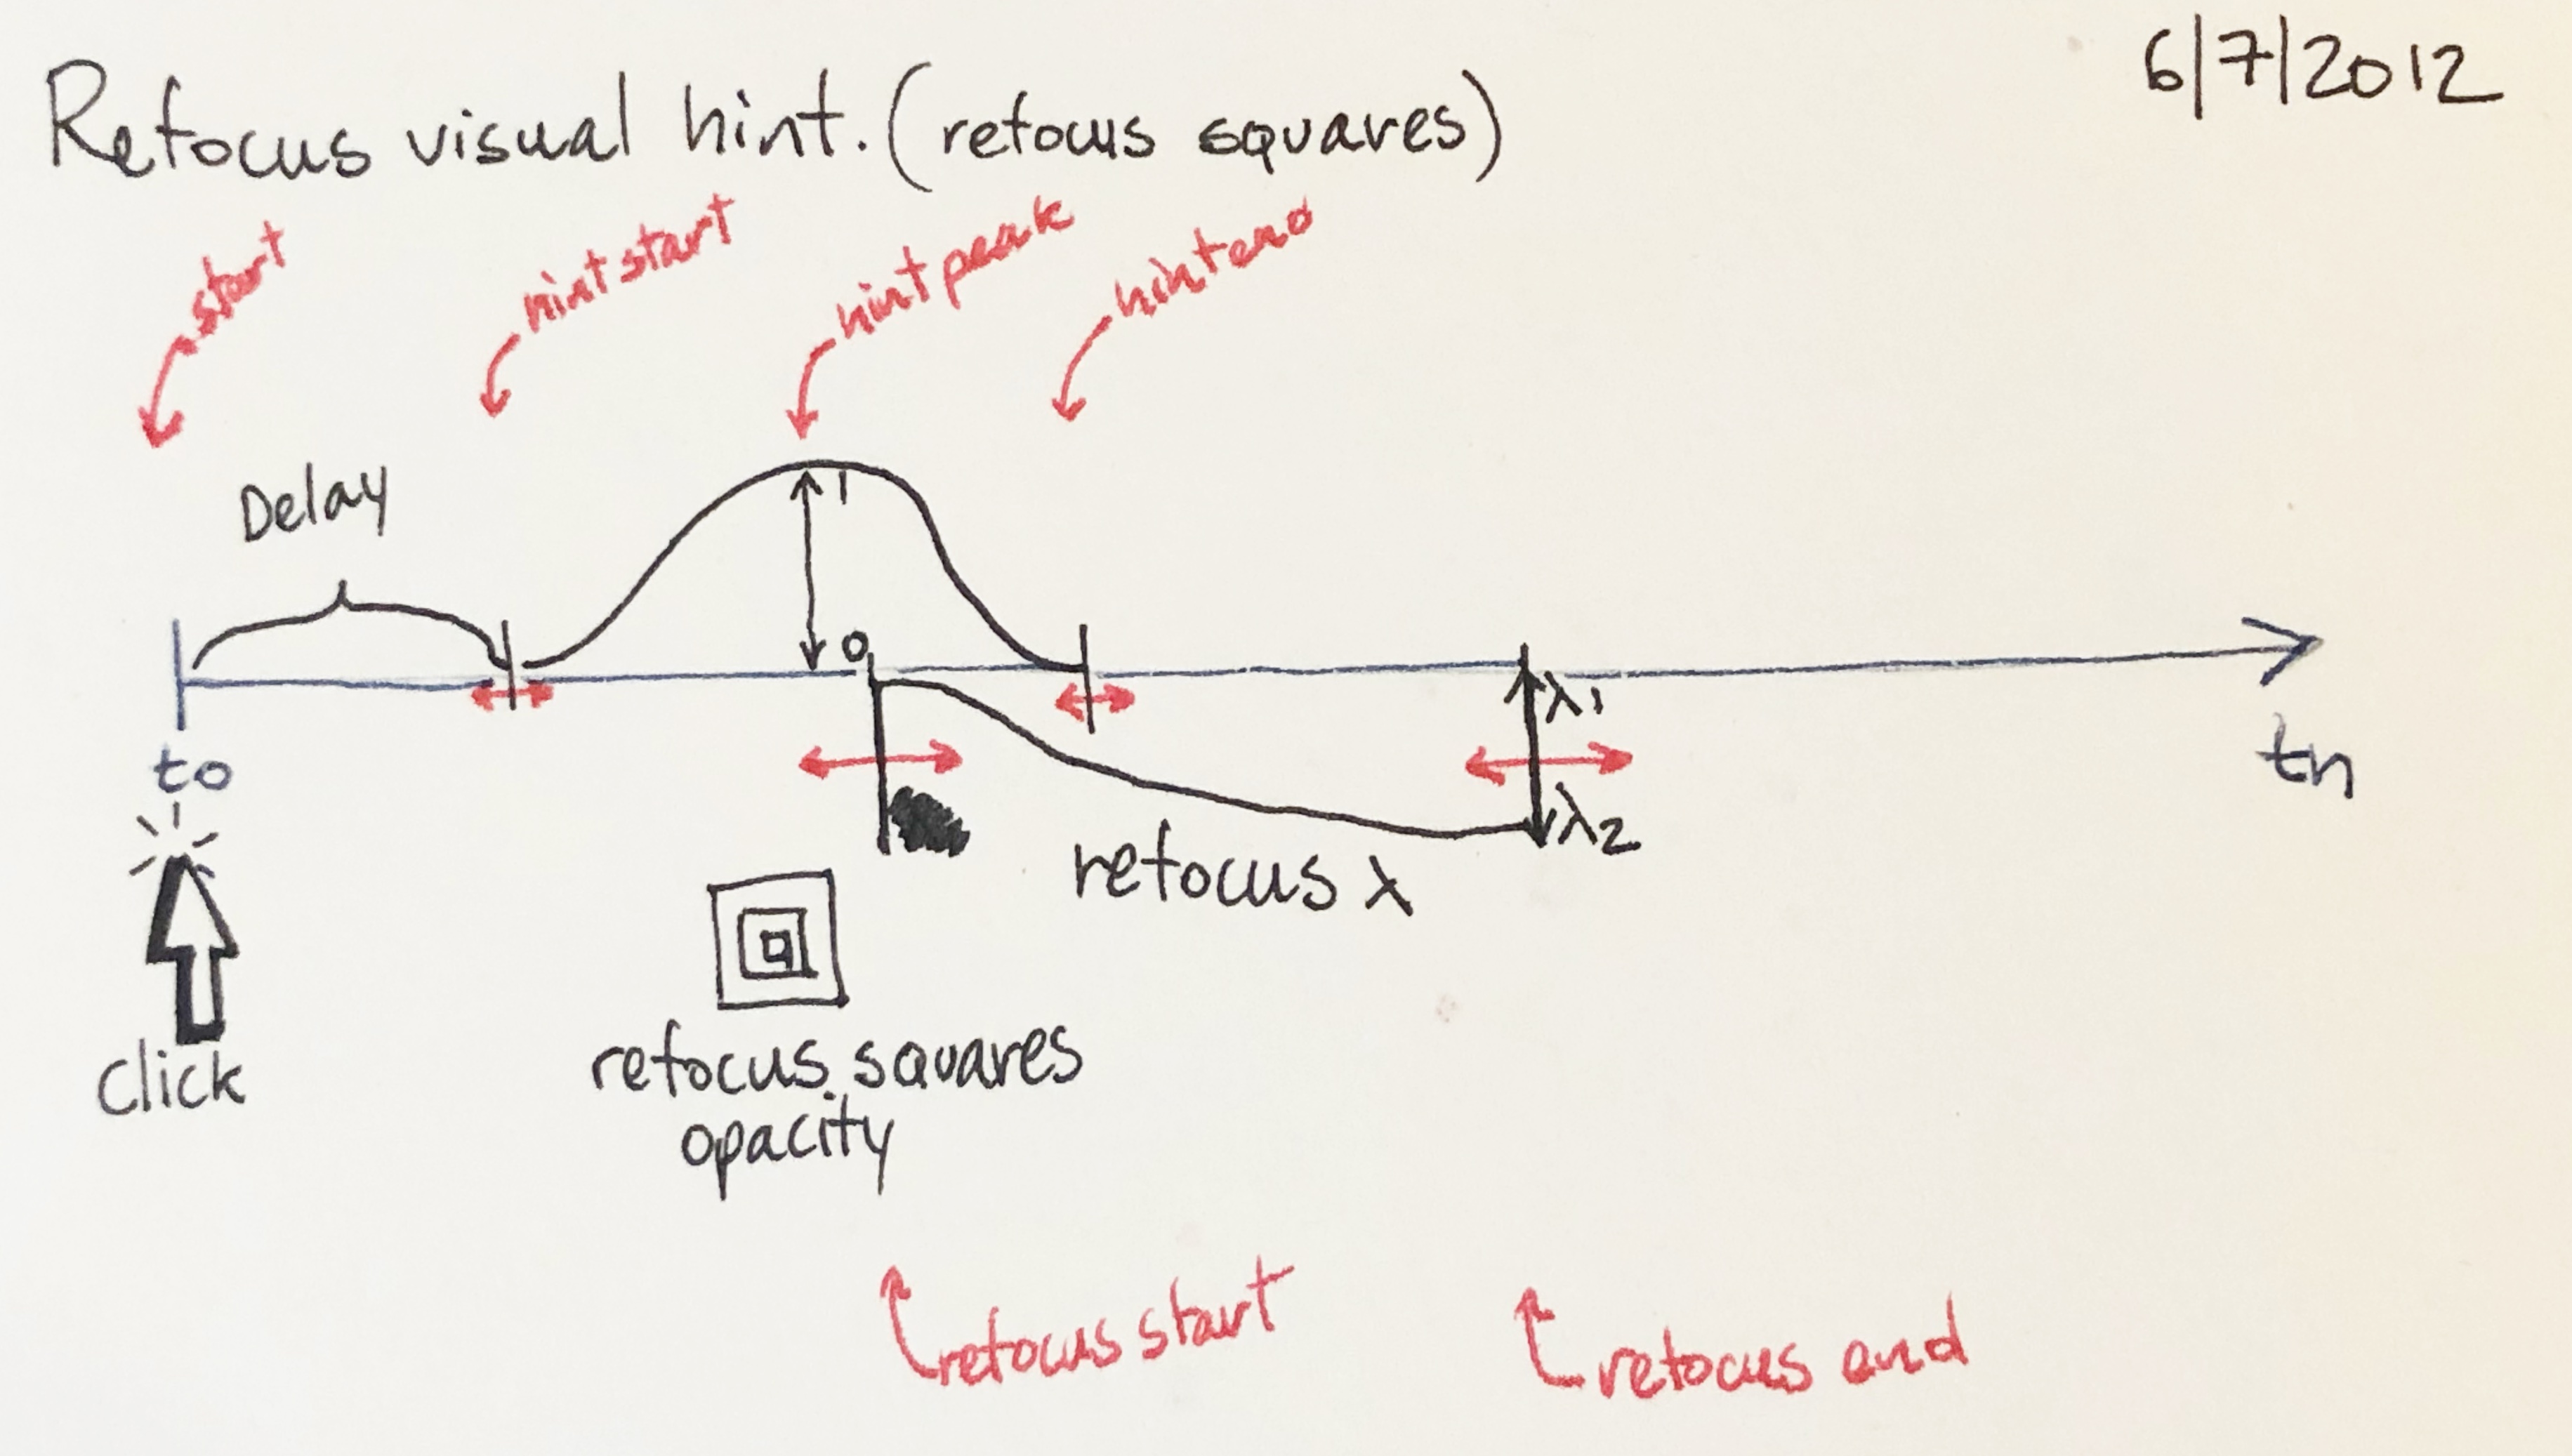 6/7/2012
Refocus visual hint. (refocus squares)
start
hint start
hint peak
hint end
Delay
1
0
λ1
to
tn
λ2
refocus λ
click
refocus squares
opacity
refocus start
refocus end